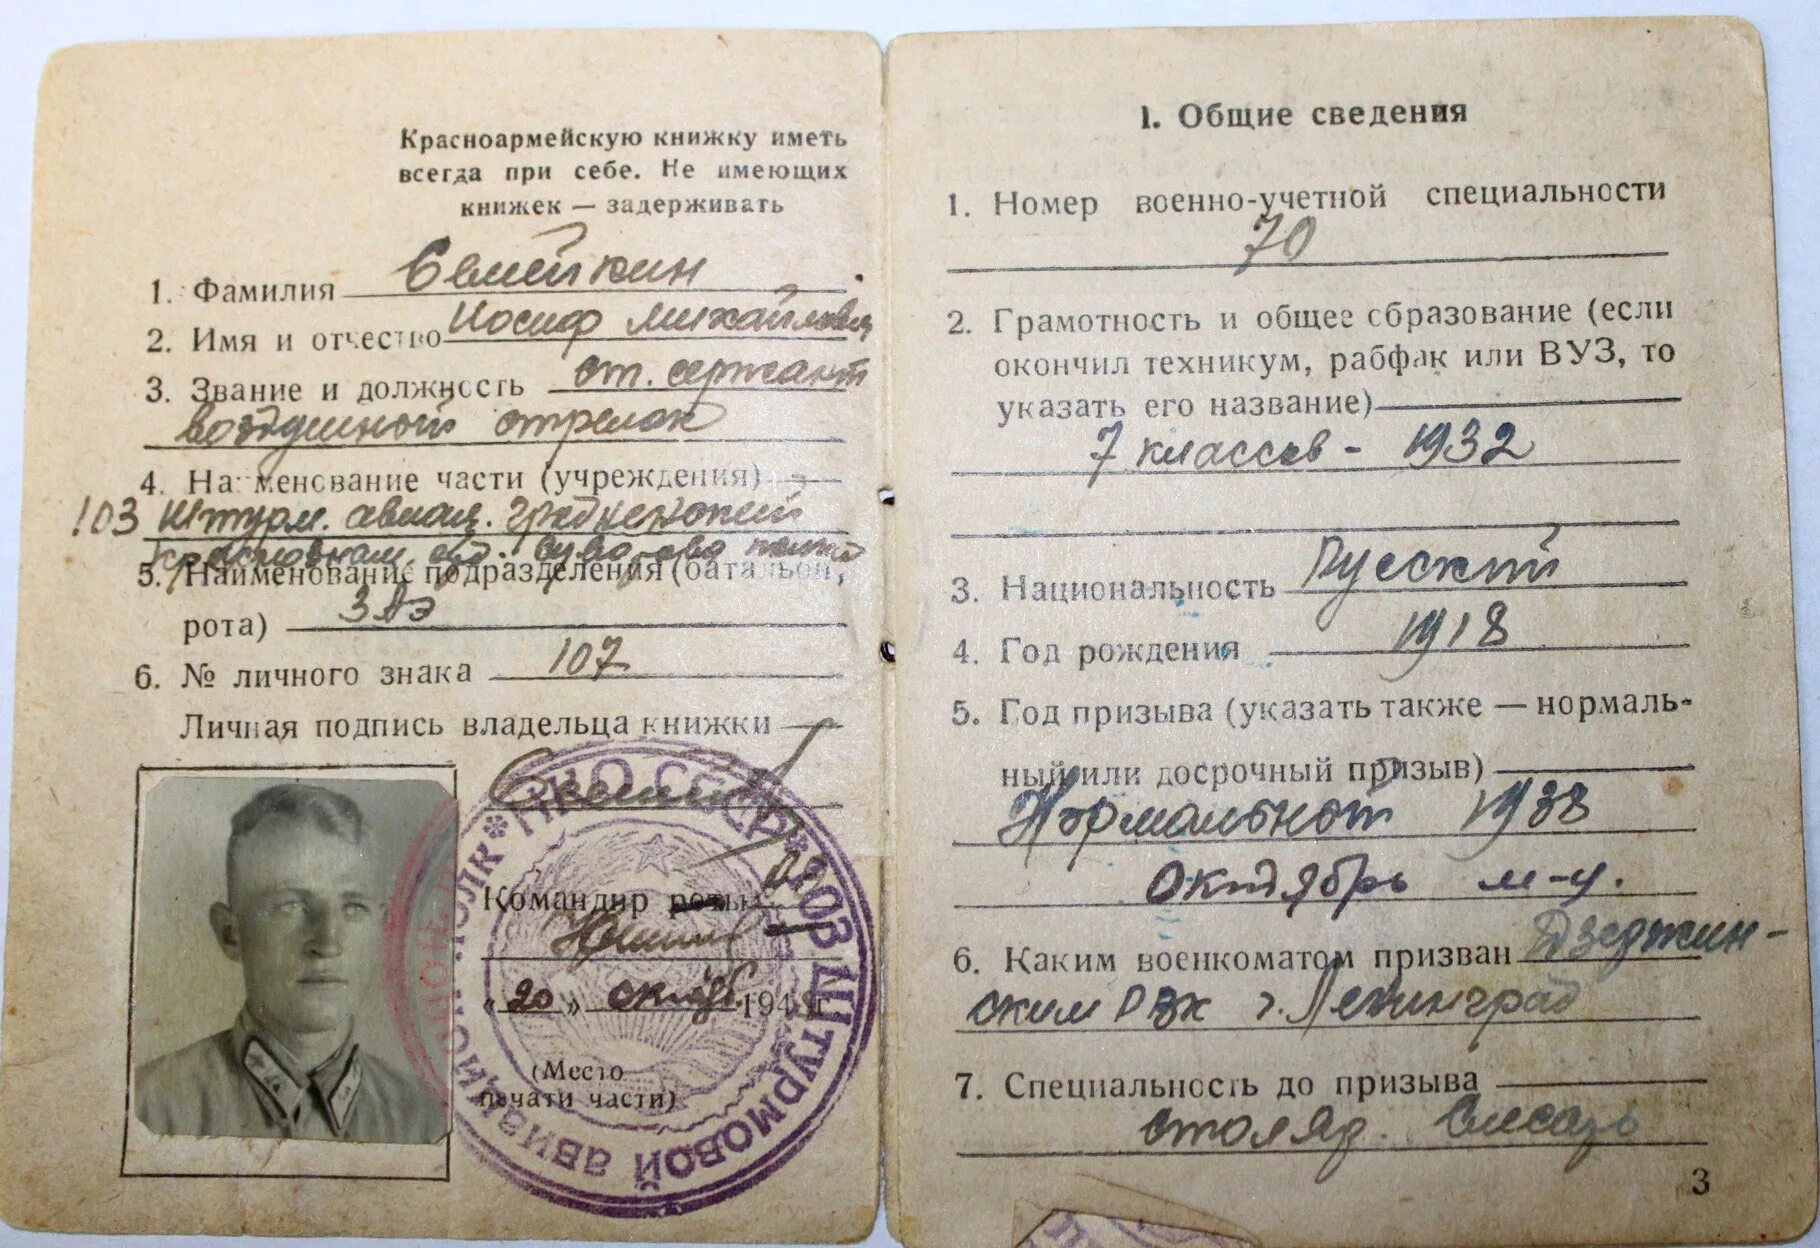 Красноармейскую книжку иметь
всегда при себе. Не имеющих
книжек — задерживать
1. Фамилия Семейкин
2. Имя и отчество Иосиф Михайлович
3. Звание и должность ст. сержант
воздушной стрелок
4. Наименование части (учреждения)
103 Штурм. авиац. Гродненский
Краснознам. орд. Суворова полк
5. Наименование подразделения (батальон,
рота) 3 АЭ
6. № личного знака 107
Личная подпись владельца книжки
Командир роты
«20» октябр 194 г.
(Место
печати части)
НКО СССР * 103 ШТУРМОВОЙ АВИАЦИОННЫЙ ПОЛК *
1. Общие сведения
1. Номер военно-учетной специальности
70
2. Грамотность и общее образование (если
окончил техникум, рабфак или ВУЗ, то
указать его название)
7 классов - 1932
3. Национальность Русский
4. Год рождения 1918
5. Год призыва (указать также — нормаль-
ный или досрочный призыв)
Нормальной 1938
октябрь м-ц.
6. Каким военкоматом призван Дзержин-
ским РВК г. Ленинград
7. Специальность до призыва
столяр. Слесарь
3